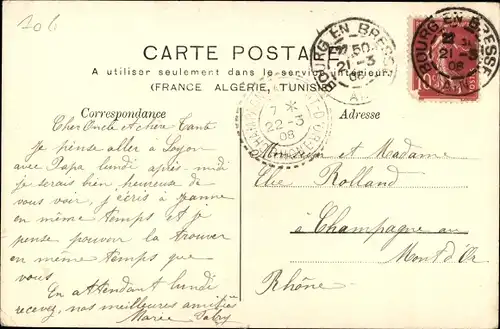 206
CARTE POSTALE
A utiliser seulement dans le service intérieur
(FRANCE ALGÉRIE, TUNISIE
Correspondance
Adresse
BOURG EN BRESSE
21-3
08
AIN
BOURG EN BRESSE
21-3
08
7 *
22-3
08
Cher Oncle et chère Tante
Je pense aller à Lyon
avec Papa lundi après-midi
je serais bien heureuse de
vous voir, j'écris à Jeanne
en même temps et je
pense pouvoir la trouver
en même temps que
vous
En attendant lundi
recevez, nos meilleures amitiés
Marie
Monsieur et Madame
Elie Rolland
à Champagne au
Mont d'Or
Rhône